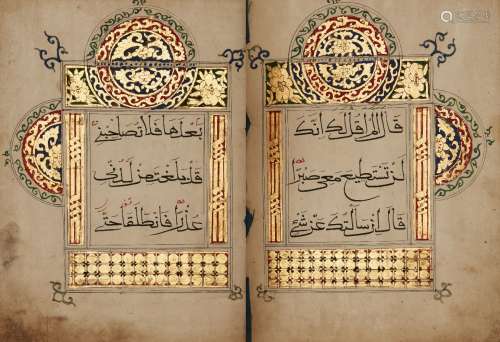 قال الم اقل لك انك
لن تستطيع معي صبرا
قال ان سالتك عن شئ
بعدها فلا تصاحبني
قد بلغت من لدني
عذرا فانطلقا حتى